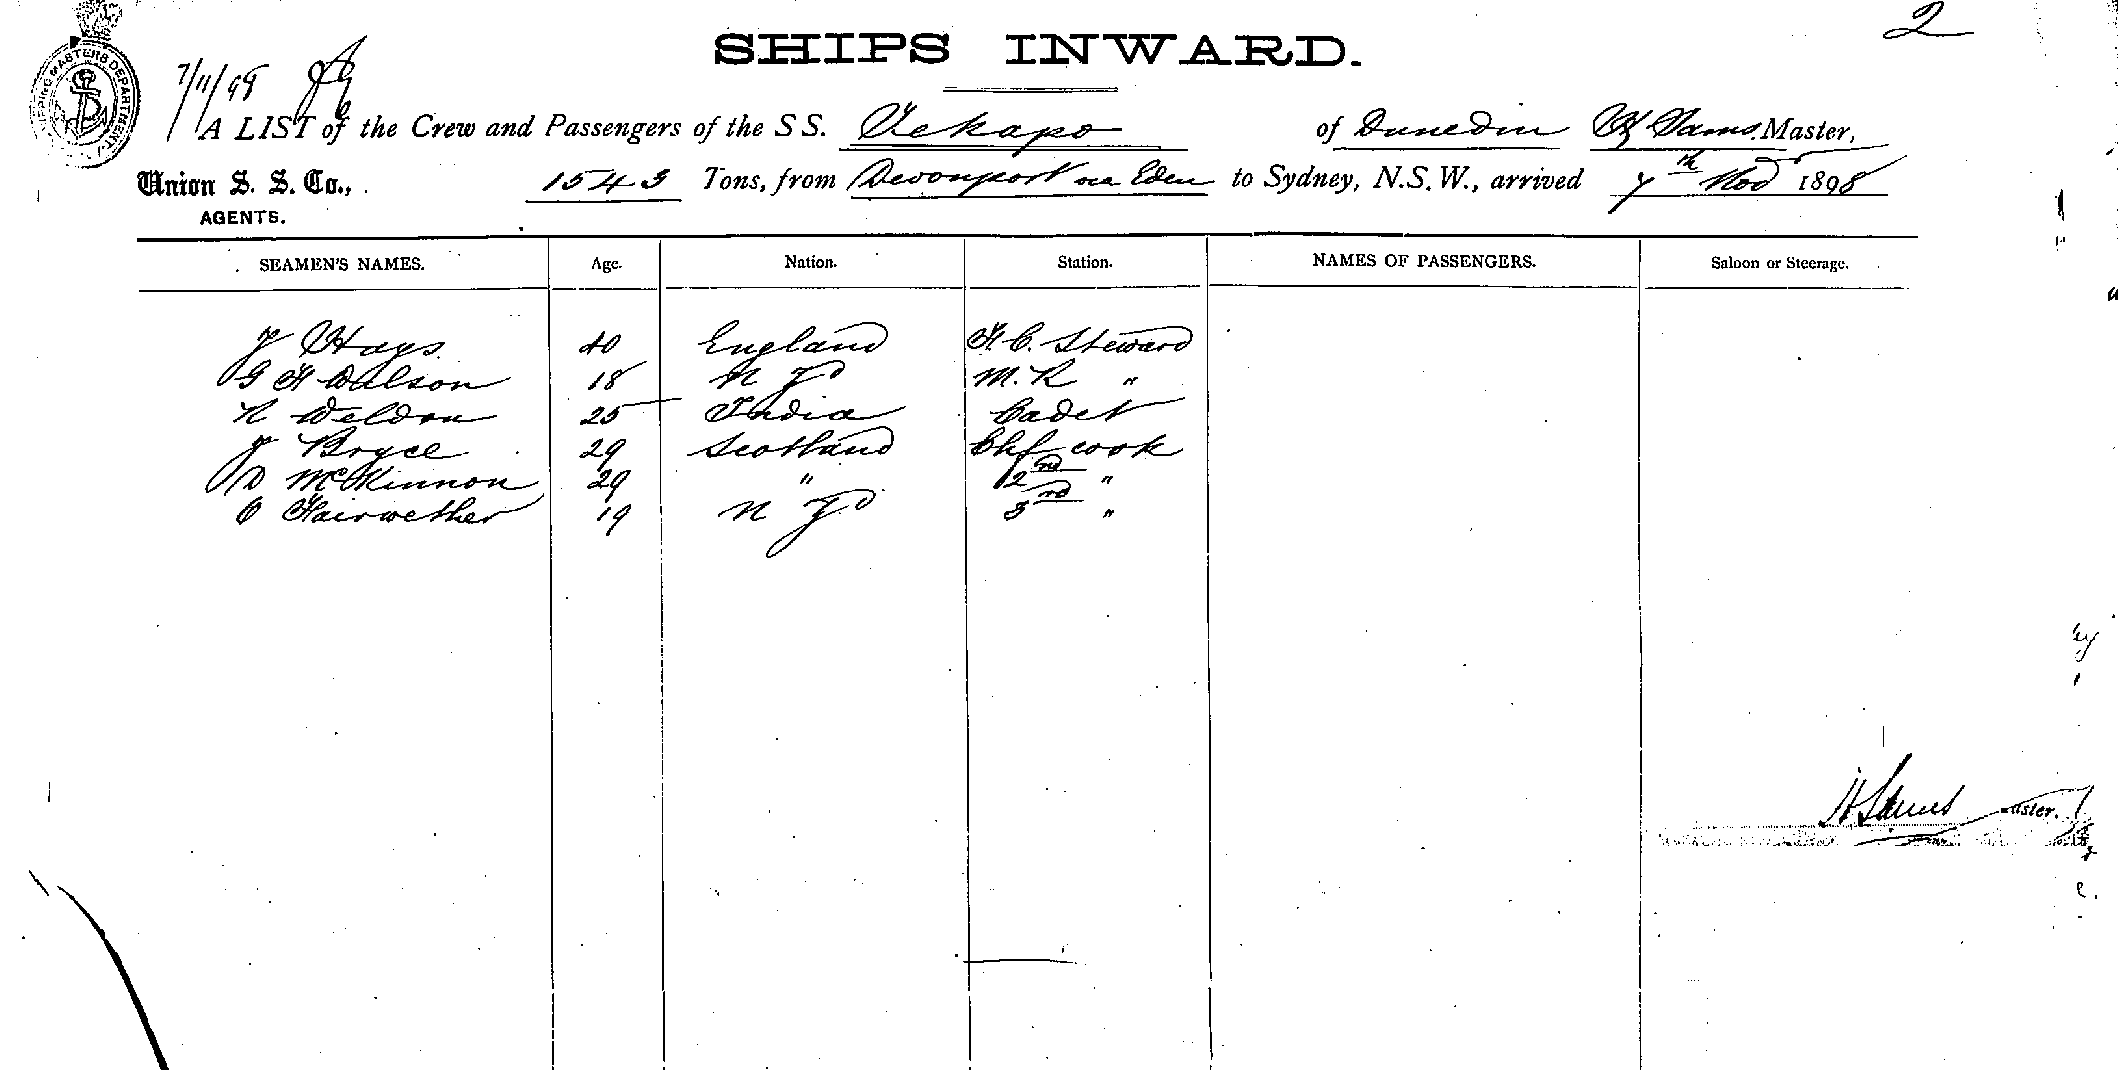 2
SHIPS INWARD.
SHIPPING MASTERS DEPARTMENT
7/11/98
A LIST of the Crew and Passengers of the SS. Tekapo of Dunedin Master,
Union S. S. Co., 1543 Tons, from Devonport via Eden to Sydney, N.S.W., arrived 7th Nov 1898
AGENTS.
SEAMEN'S NAMES. Age. Nation. Station. NAMES OF PASSENGERS. Saloon or Steerage.
J Hays 40 England F. C. Steward
G F Walson 18 N Zd M. R "
R Weldon 25 India Cadet
J Bryce 29 Scotland Chf cook
D McKinnon 29 " 2nd "
O Fairwether 19 N Zd 3rd "
aster.